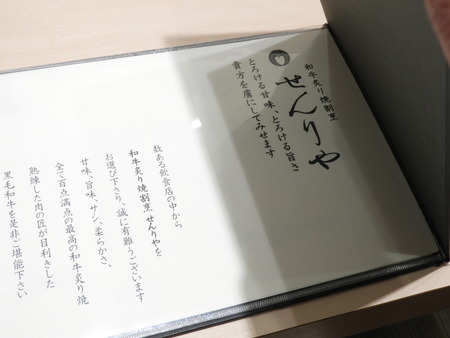 和牛炙り焼割烹
せんりや
とろける甘味、とろける旨さ
貴方を虜にしてみせます
数ある飲食店の中から
和牛炙り焼割烹 せんりやを
お選び下さり、誠に有難うございます
甘味、旨味、サシ、柔らかさ、
全て百点満点の最高の和牛炙り焼
熟練した肉の匠が目利きした
黒毛和牛を是非ご堪能下さい